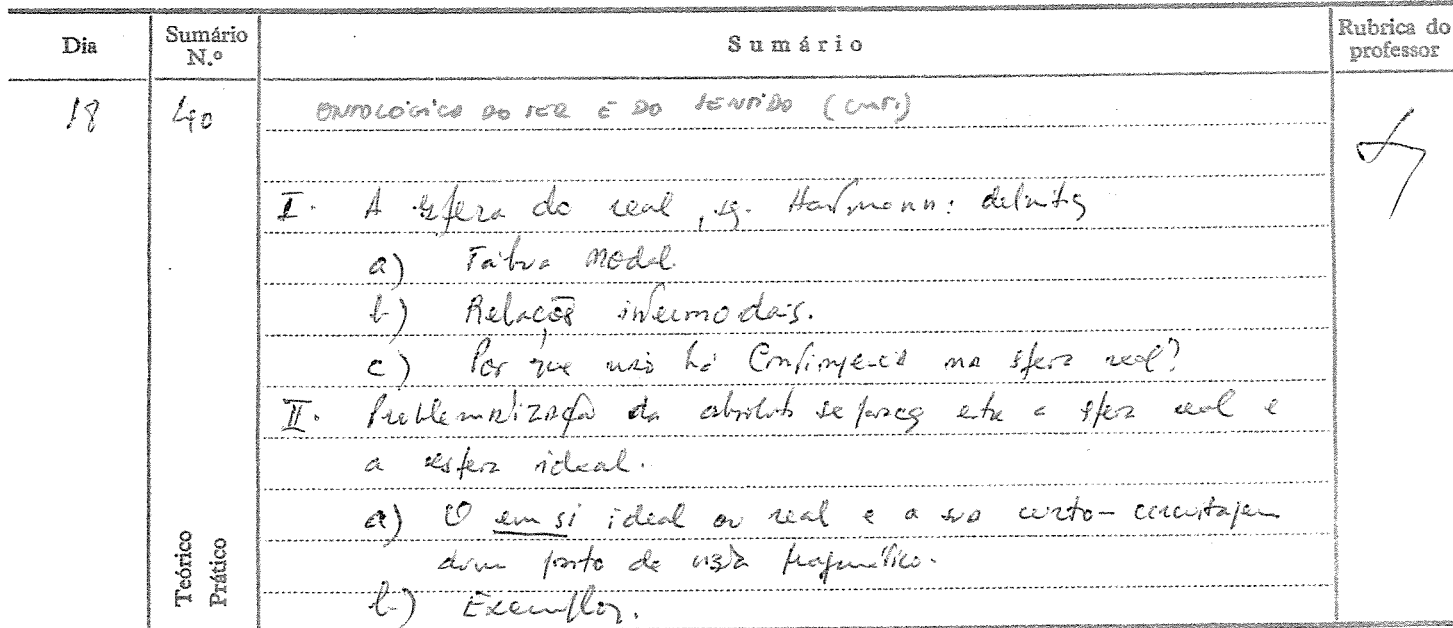 Dia Sumário N.º Sumário Rubrica do professor
18 40 ONTOLÓGICA DO SER E DO SENTIDO (cont.)
I. A esfera do real, sg. Hartmann:
a) Tábua Modal
b) Relações intermodais.
c) Por que não há Contingência na esfera real?
II. Problematização da absoluta separação entre a esfera real e
a esfera ideal.
a) O em si ideal ou real e a sua curto-circuitagem
dum ponto de vista pragmático.
b) Exemplos.
Teórico
Prático